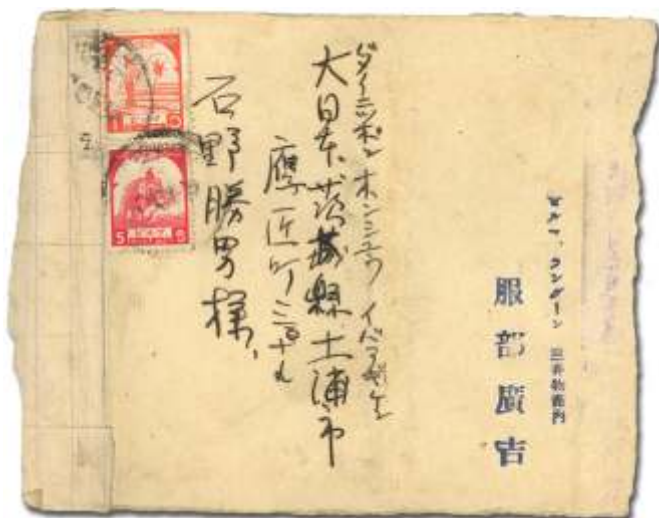 ビルマ、ラングーン 三井物産内
服部廣吉
ダイニッポン ホンシュウ イバラギケン
大日本茨城縣土浦市
鷹匠町三
石野勝男様、
1
5